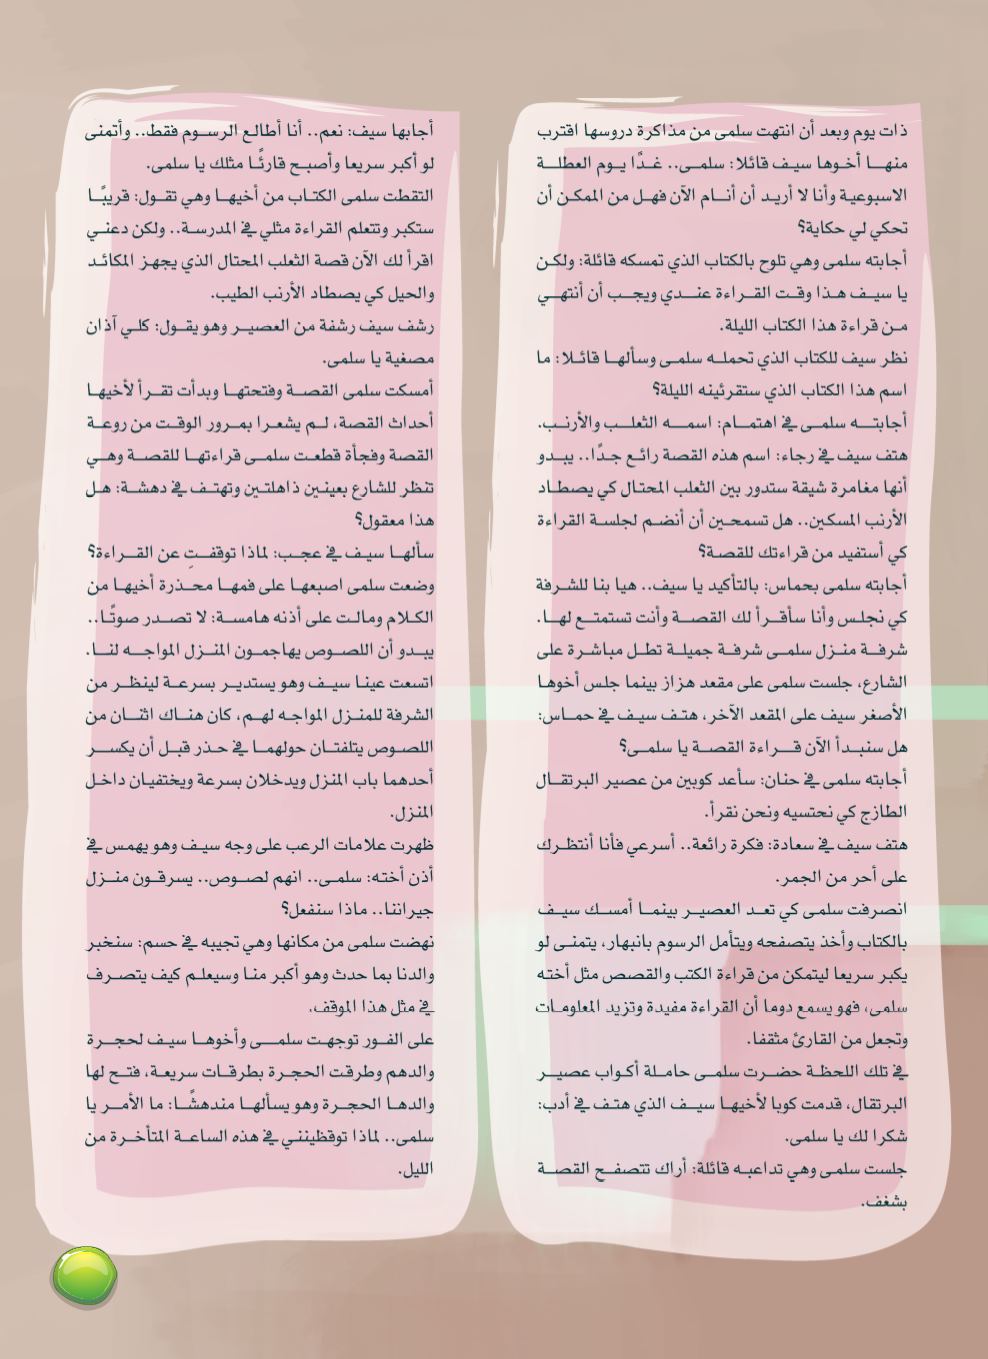 ذات يوم وبعد أن انتهت سلمى من مذاكرة دروسها اقترب
منها أخوها سيف قائلا: سلمى.. غدًا يوم العطلة
الاسبوعية وأنا لا أريد أن أنام الآن فهل من الممكن أن
تحكي لي حكاية؟
أجابته سلمى وهي تلوح بالكتاب الذي تمسكه قائلة: ولكن
يا سيف هذا وقت القراءة عندي ويجب أن أنتهي
من قراءة هذا الكتاب الليلة.
نظر سيف للكتاب الذي تحمله سلمى وسألها قائلا: ما
اسم هذا الكتاب الذي ستقرئينه الليلة؟
أجابته سلمى في اهتمام: اسمه الثعلب والأرنب.
هتف سيف في رجاء: اسم هذه القصة رائع جدًا.. يبدو
أنها مغامرة شيقة ستدور بين الثعلب المحتال كي يصطاد
الأرنب المسكين.. هل تسمحين أن أنضم لجلسة القراءة
كي أستفيد من قراءتك للقصة؟
أجابته سلمى بحماس: بالتأكيد يا سيف.. هيا بنا للشرفة
كي نجلس وأنا سأقرأ لك القصة وأنت تستمتع لها.
شرفة منزل سلمى شرفة جميلة تطل مباشرة على
الشارع، جلست سلمى على مقعد هزاز بينما جلس أخوها
الأصغر سيف على المقعد الآخر، هتف سيف في حماس:
هل سنبدأ الآن قراءة القصة يا سلمى؟
أجابته سلمى في حنان: سأعد كوبين من عصير البرتقال
الطازج كي نحتسيه ونحن نقرأ.
هتف سيف في سعادة: فكرة رائعة.. أسرعي فأنا أنتظرك
على أحر من الجمر.
انصرفت سلمى كي تعد العصير بينما أمسك سيف
بالكتاب وأخذ يتصفحه ويتأمل الرسوم بانبهار، يتمنى لو
يكبر سريعا ليتمكن من قراءة الكتب والقصص مثل أخته
سلمى، فهو يسمع دوما أن القراءة مفيدة وتزيد المعلومات
وتجعل من القارئ مثقفا.
في تلك اللحظة حضرت سلمى حاملة أكواب عصير
البرتقال، قدمت كوبا لأخيها سيف الذي هتف في أدب:
شكرا لك يا سلمى.
جلست سلمى وهي تداعبه قائلة: أراك تتصفح القصة
بشغف.
أجابها سيف: نعم.. أنا أطالع الرسوم فقط.. وأتمنى
لو أكبر سريعا وأصبح قارئًا مثلك يا سلمى.
التقطت سلمى الكتاب من أخيها وهي تقول: قريبًا
ستكبر وتتعلم القراءة مثلي في المدرسة.. ولكن دعني
اقرأ لك الآن قصة الثعلب المحتال الذي يجهز المكائد
والحيل كي يصطاد الأرنب الطيب.
رشف سيف رشفة من العصير وهو يقول: كلي آذان
مصغية يا سلمى.
أمسكت سلمى القصة وفتحتها وبدأت تقرأ لأخيها
أحداث القصة، لم يشعرا بمرور الوقت من روعة
القصة وفجأة قطعت سلمى قراءتها للقصة وهي
تنظر للشارع بعينين ذاهلتين وتهتف في دهشة: هل
هذا معقول؟
سألها سيف في عجب: لماذا توقفتِ عن القراءة؟
وضعت سلمى اصبعها على فمها محذرة أخيها من
الكلام ومالت على أذنه هامسة: لا تصدر صوتًا..
يبدو أن اللصوص يهاجمون المنزل المواجه لنا.
اتسعت عينا سيف وهو يستدير بسرعة لينظر من
الشرفة للمنزل المواجه لهم، كان هناك اثنان من
اللصوص يتلفتان حولهما في حذر قبل أن يكسر
أحدهما باب المنزل ويدخلان بسرعة ويختفيان داخل
المنزل.
ظهرت علامات الرعب على وجه سيف وهو يهمس في
أذن أخته: سلمى.. انهم لصوص.. يسرقون منزل
جيراننا.. ماذا سنفعل؟
نهضت سلمى من مكانها وهي تجيبه في حسم: سنخبر
والدنا بما حدث وهو أكبر منا وسيعلم كيف يتصرف
في مثل هذا الموقف.
على الفور توجهت سلمى وأخوها سيف لحجرة
والدهم وطرقت الحجرة بطرقات سريعة، فتح لها
والدها الحجرة وهو يسألها مندهشًا: ما الأمر يا
سلمى.. لماذا توقظينني في هذه الساعة المتأخرة من
الليل.